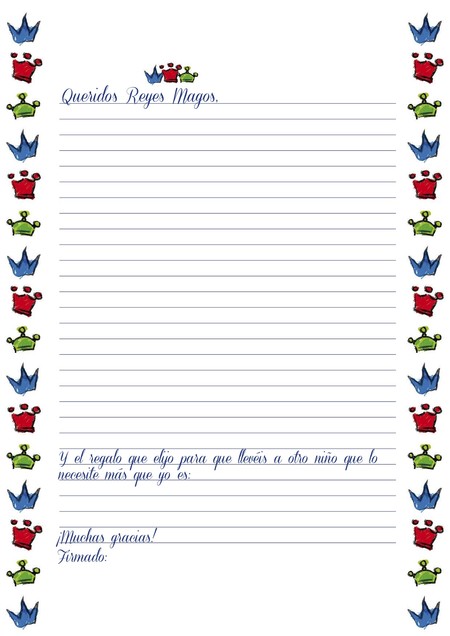 Queridos Reyes Magos,
Y el regalo que elijo para que llevéis a otro niño que lo
necesite más que yo es:
¡Muchas gracias!
Firmado: